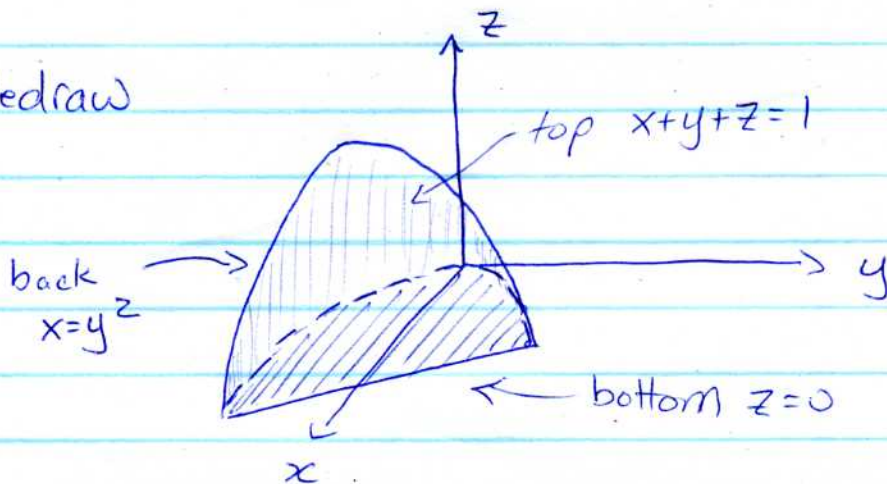 z
edraw
top x+y+z=1
back
x=y²
y
bottom z=0
x